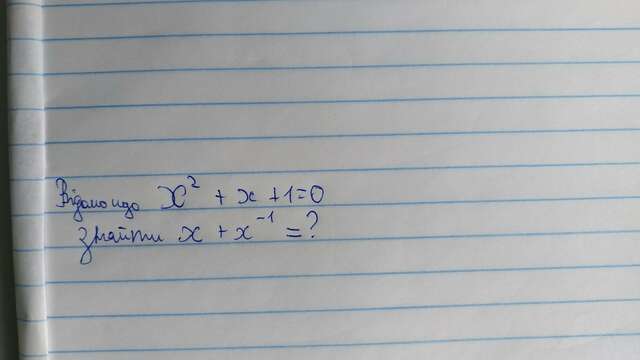 Відомо що x² + x + 1 = 0
знайти x + x⁻¹ = ?